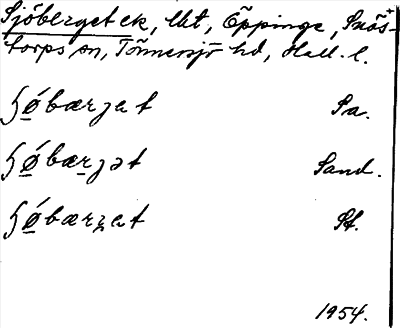 Sjöberget ek, lht, Öppinge, Snös-
torps sn, Tönnersjö hd, Hall. l.
ʃǿ̱bærjat Sa.
ʃǿ̱bæṟjət Sand.
ʃǿ̱bærjat St.
1954.